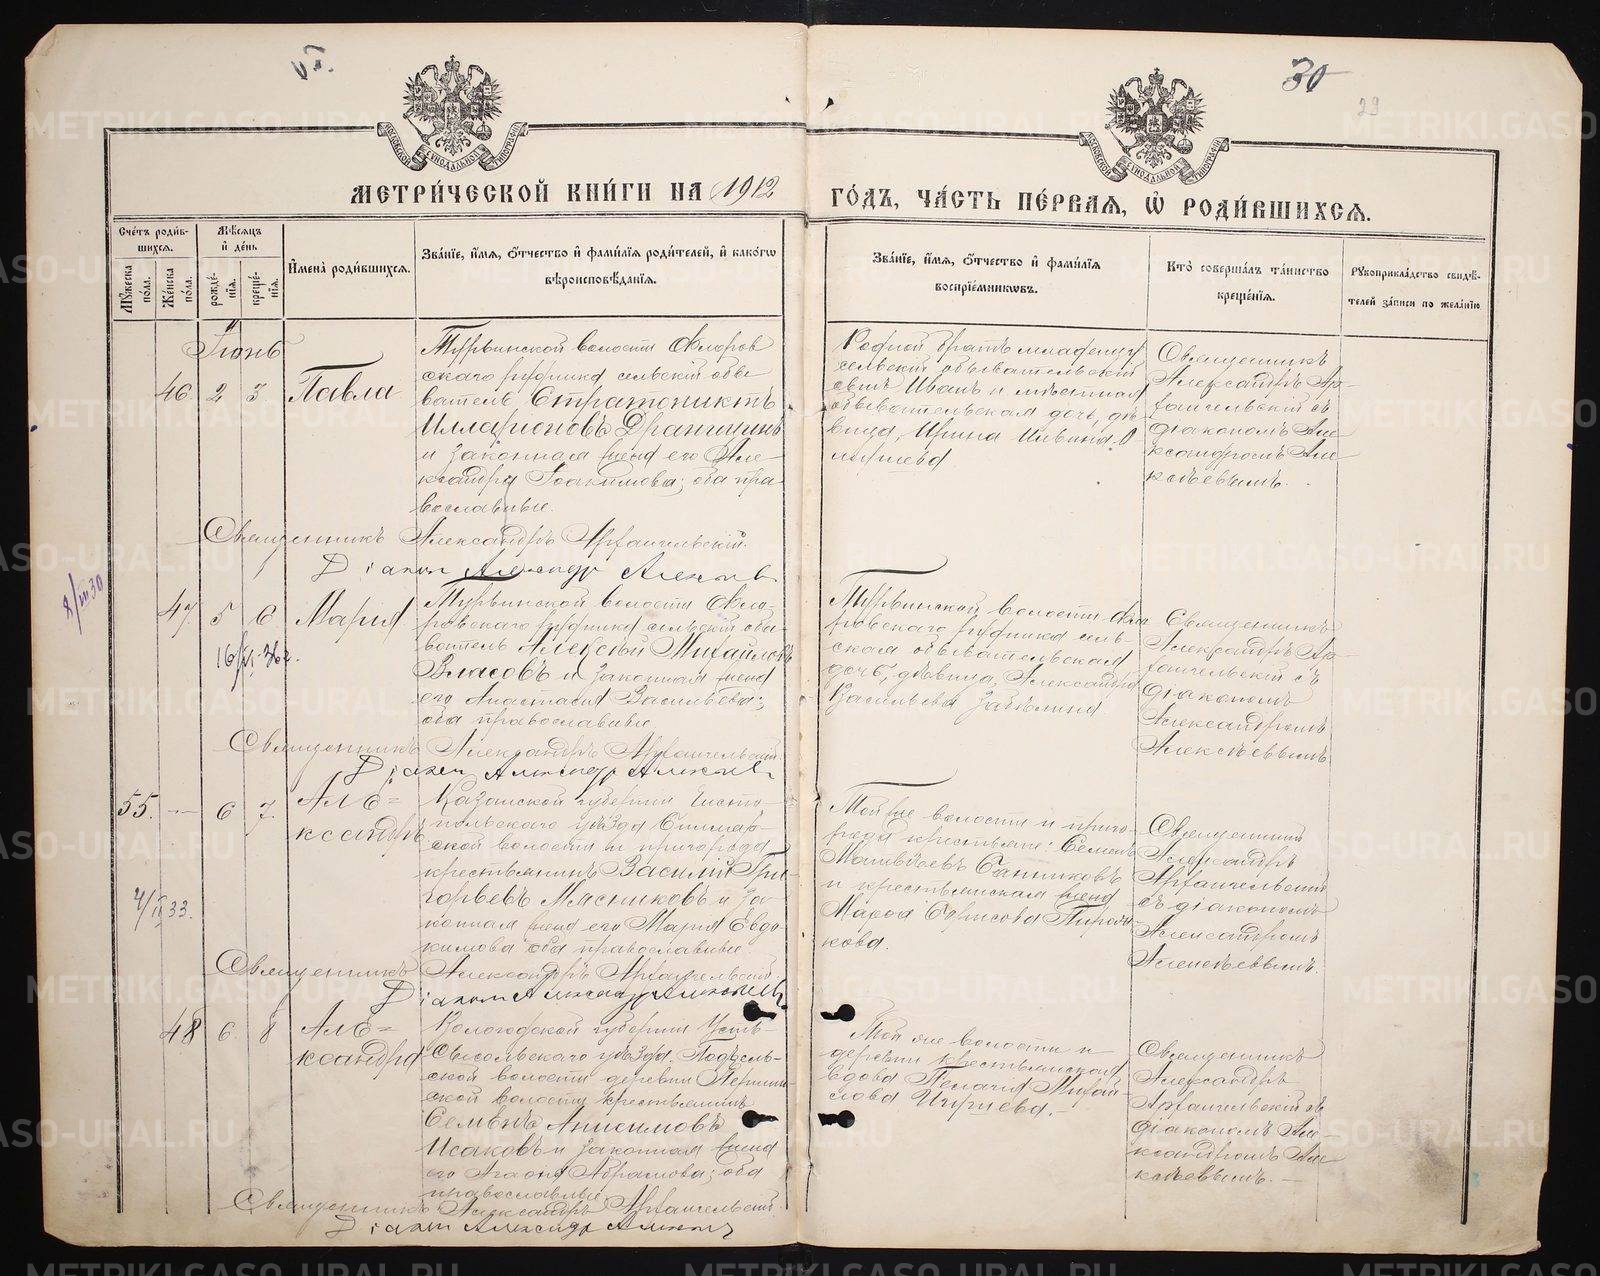 30
29
МОСКОВСКОЙ СѴНОДАЛЬНОЙ ТИПОГРАФІИ
МОСКОВСКОЙ СѴНОДАЛЬНОЙ ТИПОГРАФІИ
МЕТРИ́ЧЕСКОЙ КНИ́ГИ НА 1912
ГО́ДЪ, ЧА́СТЬ ПЕ́РВАЯ, Ѡ РОДИ́ВШИХСЯ.
Сче́тъ роди́в-
шихся.
Му́жеска
по́ла.
Же́нска
по́ла.
Мѣ́сяцъ
и де́нь
рожде́-
нїя.
креще́-
нїя.
И́мена̀ роди́вшихся.
Зва́нїе, и́мя, о́тчество и фами́лїя роди́телей, и како́гѡ
вѣроисповѣ́данїя.
Зва́нїе, и́мя, о́тчество и фами́лїя
воспрїе́мниковъ.
Кто̀ соверша́лъ та́инство
креще́нїя.
Рукоприкла́дство свидѣ́-
телей за́писи по жела́нїю
Іюнь
46. 2 3. Павла
Турьинской волости Фролов
скаго рудника сельскій обы
ватель Стратоникъ
Илларіоновъ Дранишинъ
и законная жена его Але-
ксандра Іоакимова; оба пра-
вославные.
Родной братъ младенцу
сельскій обывательскій
сынъ Иванъ и мѣстная
обывательская дочь, дѣ
вица, Ирина
Священникъ
Александръ Ар-
хангельскій съ
діакономъ Але
ксандромъ Але
ксѣевымъ.
Священникъ Александръ Архангельскій.
Діакон Александр Алексѣев
8/III 30
47. 5 6 Мария
16/VI-36г.
Турьинской волости Фро-
ловскаго рудника сельскій обы-
ватель Алексѣй Михайловъ
Власовъ и законная жена
его Анастасія Васильева;
оба православные
Турьинской волости Фло
ровскаго рудника сель-
ская обывательская
дочь, дѣвица, Александра
Васильева Забѣлина
Священникъ
Александръ Ар-
хангельскій съ
діакономъ
Александромъ
Алексѣевымъ.
Священникъ Александръ Архангельскій.
Діакон Александр Алексѣев
55. — 6 7. Але=
ксандръ
4/II 33.
Казанской губерніи Чисто-
польскаго уѣзда Билляр-
ской волости и пригорода
крестьянинъ Василій Гри-
горьевъ Мясниковъ и за-
конная жена его Марія Евдо-
кимова оба православные
Той же волости и приго-
рода крестьяне: Семенъ
Матвѣевъ Санниковъ
и крестьянская жена
Марѳа Борисова
Священникъ
Александръ
Архангельскій
съ діакономъ
Александромъ
Алексѣевымъ.
Священникъ Александръ Архангельскій.
Діакон Александр Алексѣев
48 6. 8 Але=
ксандра
Вологодской губерніи Усть-
Сысольскаго уѣзда Подъель-
ской волости деревни
ской волости крестьянинъ
Семенъ Анисимовъ
Исаковъ и законная жена
его Агаѳія Абрамова; оба
православные.
Той же волости и
деревни крестьянская
вдова Пелагія Михай-
лова Игушева.—
Священникъ
Александръ
Архангельскій съ
діакономъ Але-
ксандромъ Але
ксѣевымъ. —
Священникъ Александръ Архангельскій.
Діакон Александр Алексѣев
METRIKI.GASO-URAL.RU